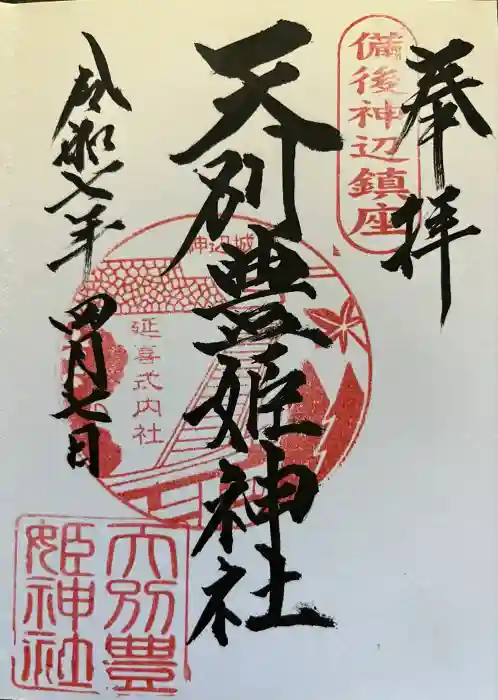 奉拝
備後神辺鎮座
天別豊姫神社
神辺城
延喜式内社
令和七年 四月七日
天別豊
姫神社